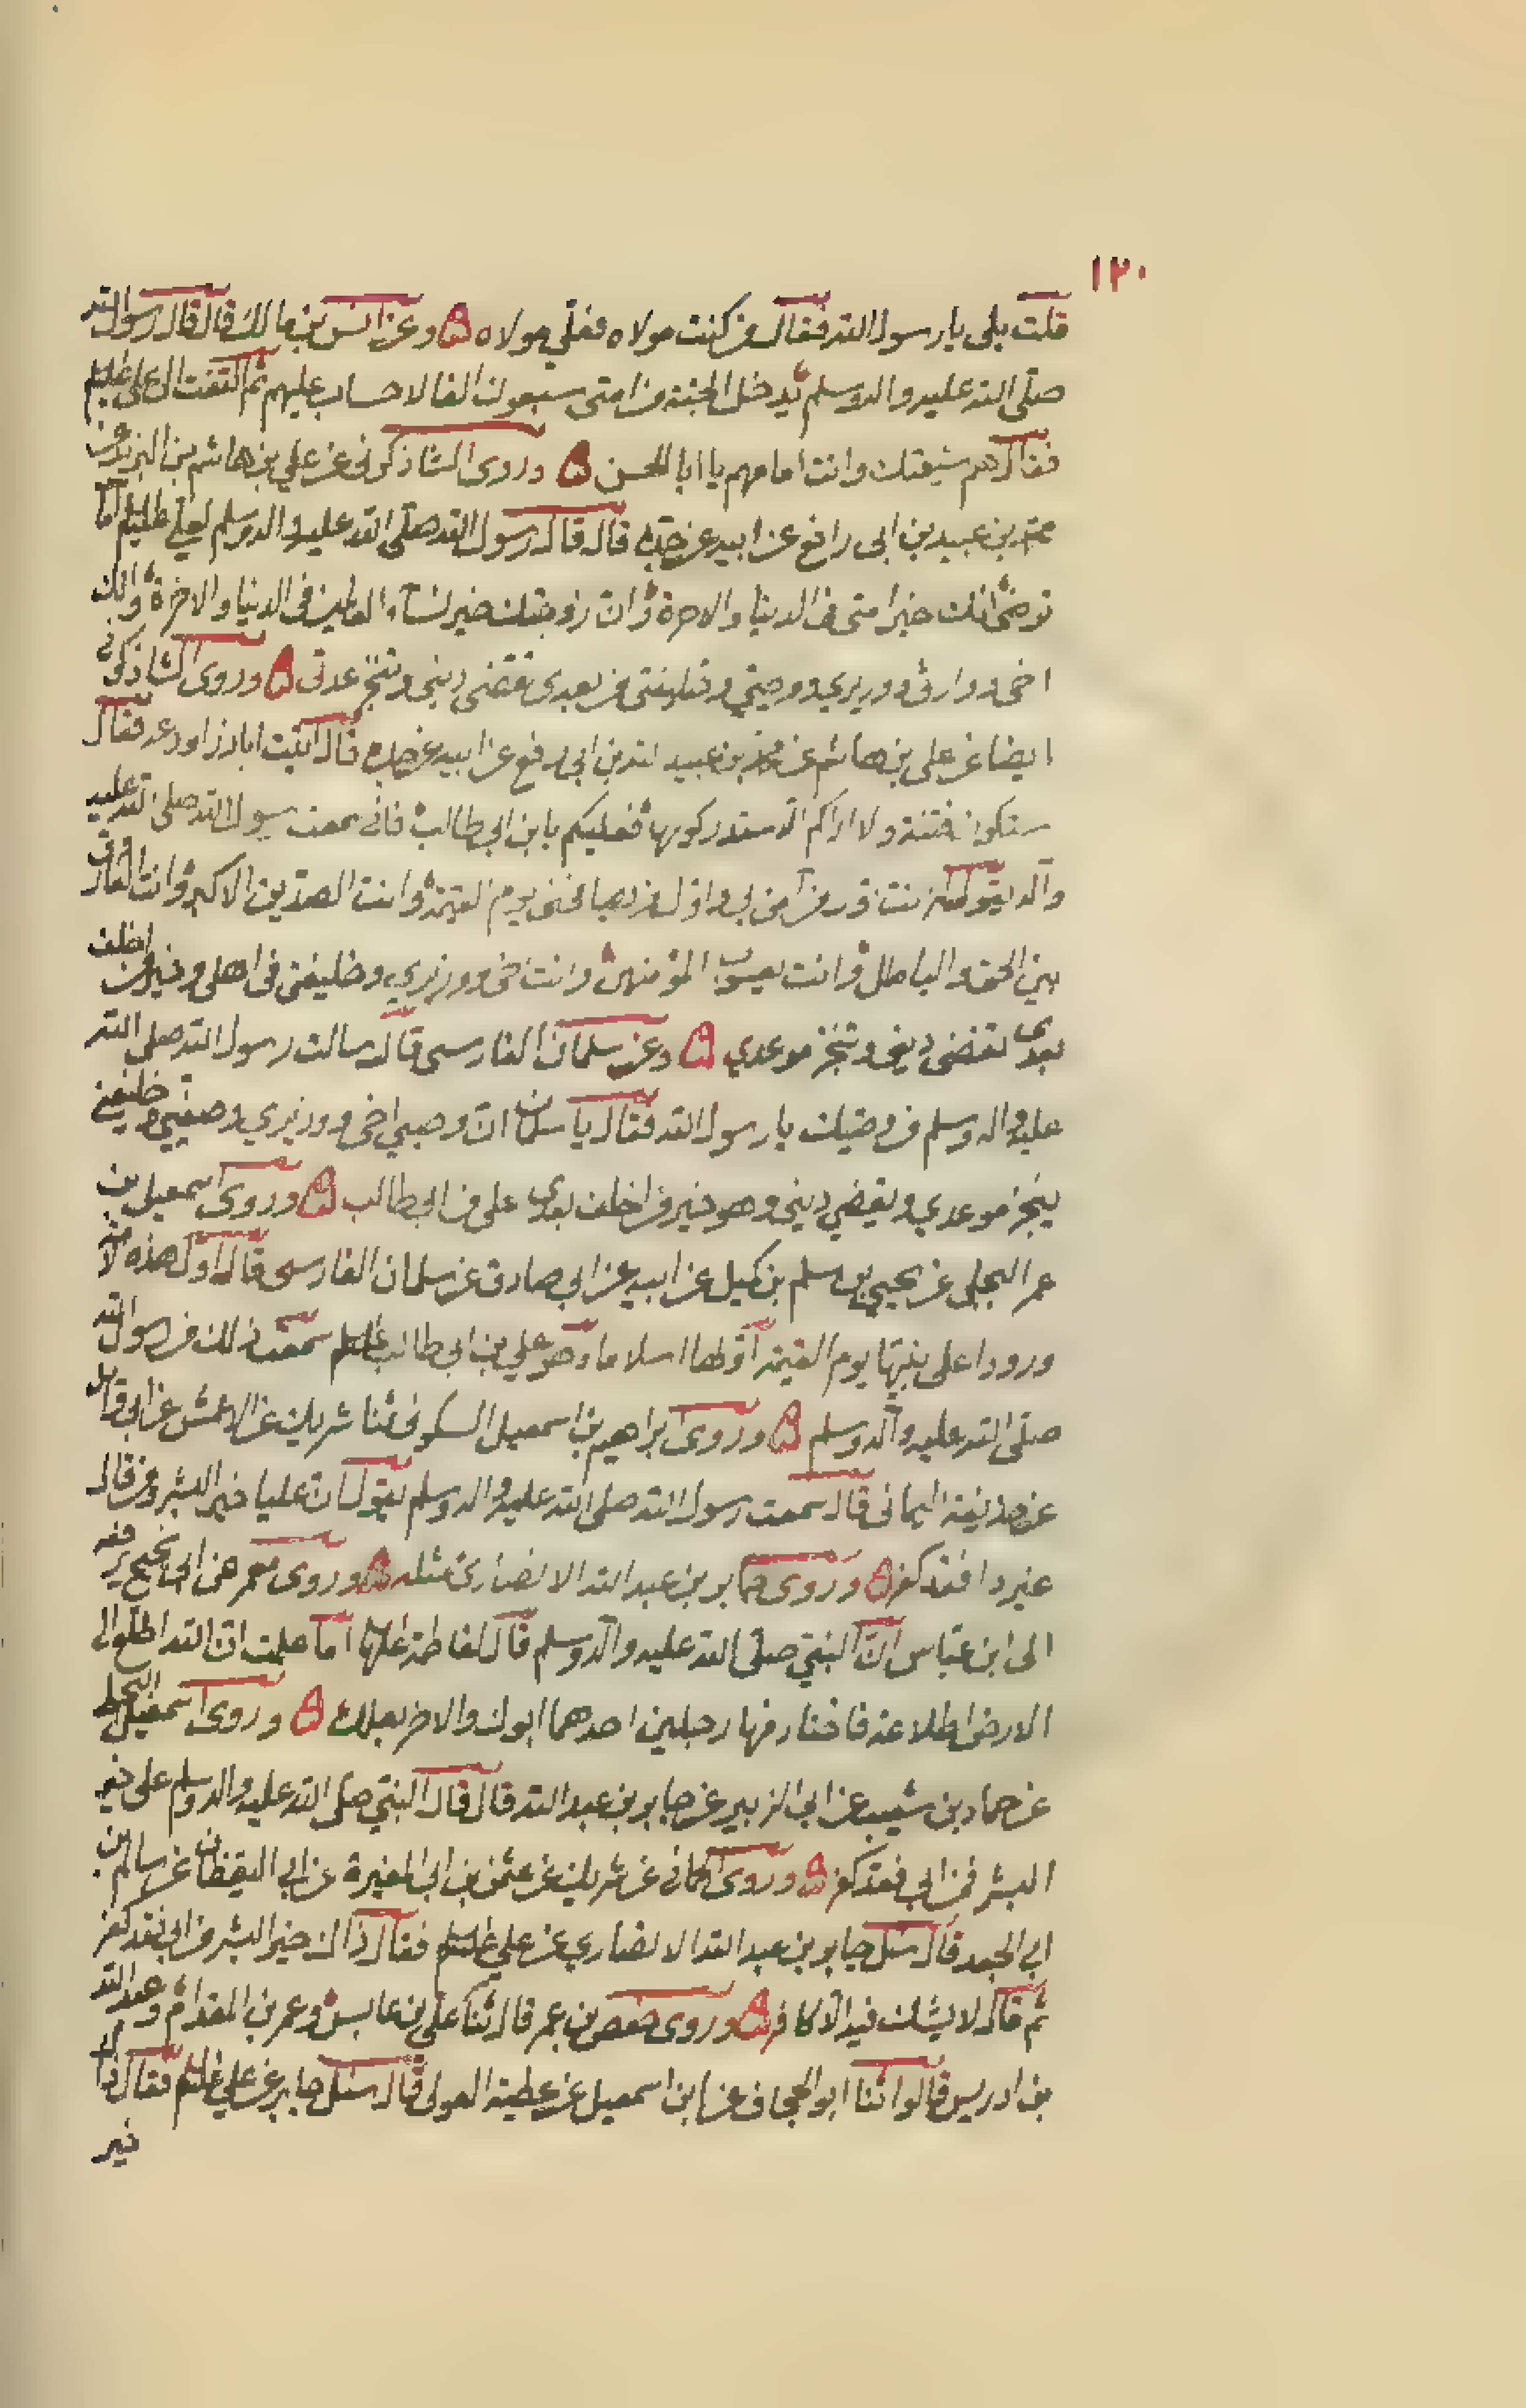 ١٢٠
قلت بلى يا رسول الله فقال من كنت مولاه فعلي مولاه وعن انس بن مالك قال قال رسول الله
صلى الله عليه واله وسلم يدخل الجنة من امتى سبعون الفا لا حساب عليهم ثم التفت الى على عليلم
فقال هم شيعتك وانت امامهم يا ابا الحسن وروى الشاذكونى عن علي بن هاشم بن البريد عن
محمد بن عبيد بن ابى رافع عن ابيه عن جده قال قال رسول الله صلى الله عليه واله وسلم لعلي عليلم اما
ترضى انك خير امتى فى الدنيا والاخرة وان زوجتك خير نساء العالمين فى الدنيا والاخرة وانك
اخى ووارثى ووزيري ووصيي وخليفتى من بعدى تقضى دينى وتنجز عدتى وروى الشاذكونى
ايضا عن على بن هاشم عن محمد بن عبيد الله بن ابى رافع عن ابيه عن جده قال اتيت اباذر اودعه فقال
ستكون فتنة ولا اراكم الا ستدركونها فعليكم بابن ابى طالب فانى سمعت رسول الله صلى الله عليه
واله يقول له انت اول من آمن بى واول من يصافحنى يوم القيمة وانت الصديق الاكبر وانت الفاروق
بين الحق والباطل وانت يعسوب المؤمنين وانت اخى ووزيري وخليفتى فى اهلى وخير من اخلف
بعدى تقضى دينى وتنجز موعدي وعن سلمان الفارسى قال سالت رسول الله صلى الله
عليه واله وسلم من وصيك يا رسول الله فقال يا سلمان ان وصيي اخى ووزيري وصفيي وخليفتي
ينجز موعدي ويقضي دينى وهو خير من اخلف بعدى على بن ابى طالب وروى اسمعيل بن
عمر البجلى عن يحيي بن سلم بن كهيل عن ابيه عن ابي صادق عن سلمان الفارسى قال اول هذه الامة
ورودا على نبيها يوم القيمة اولها اسلاما وهو علي بن ابى طالب عليلم سمعت ذلك من رسول الله
صلى الله عليه واله وسلم وروى ابراهيم بن اسمعيل السكونى ثنا شريك عن الاعمش عن ابى وايل
عن حذيفة اليمانى قال سمعت رسول الله صلى الله عليه واله وسلم يقول ان عليا خير البشر ومن قال
غير ذا فقد كفر وروى جابر بن عبد الله الانصارى مثله وروى معمر عن ابى نجيح يرفعه
الى ابن عباس ان النبي صلى الله عليه واله وسلم قال لفاطمة عليها اما علمت ان الله اطلع الى
الارض اطلاعة فاختار منها رجلين احدهما ابوك والاخر بعلك وروى اسمعيل البجلى
عن حماد بن شعيب عن ابى الزبير عن جابر بن عبد الله قال قال النبي صلى الله عليه واله وسلم على خير
البشر فمن ابى فقد كفر وروى الحمانى عن شريك عن عثمن بن ابى المغيرة عن ابي اليقظان عن سالم بن
ابي الجعد قال سئل جابر بن عبد الله الانصاري عن علي عليلم فقال ذاك خير البشر من ابى فقد كفر
ثم قال لا يشك فيه الا كافر وروى حفص بن عمر قال ثنا على بن عابس وعمر بن المقدام وعبد الله
بن ادريس قالوا ثنا ابو الجحاف عن ابن اسمعيل عن عطية العوفى قال سئل جابر عن علي عليلم فقال ذاك
خير